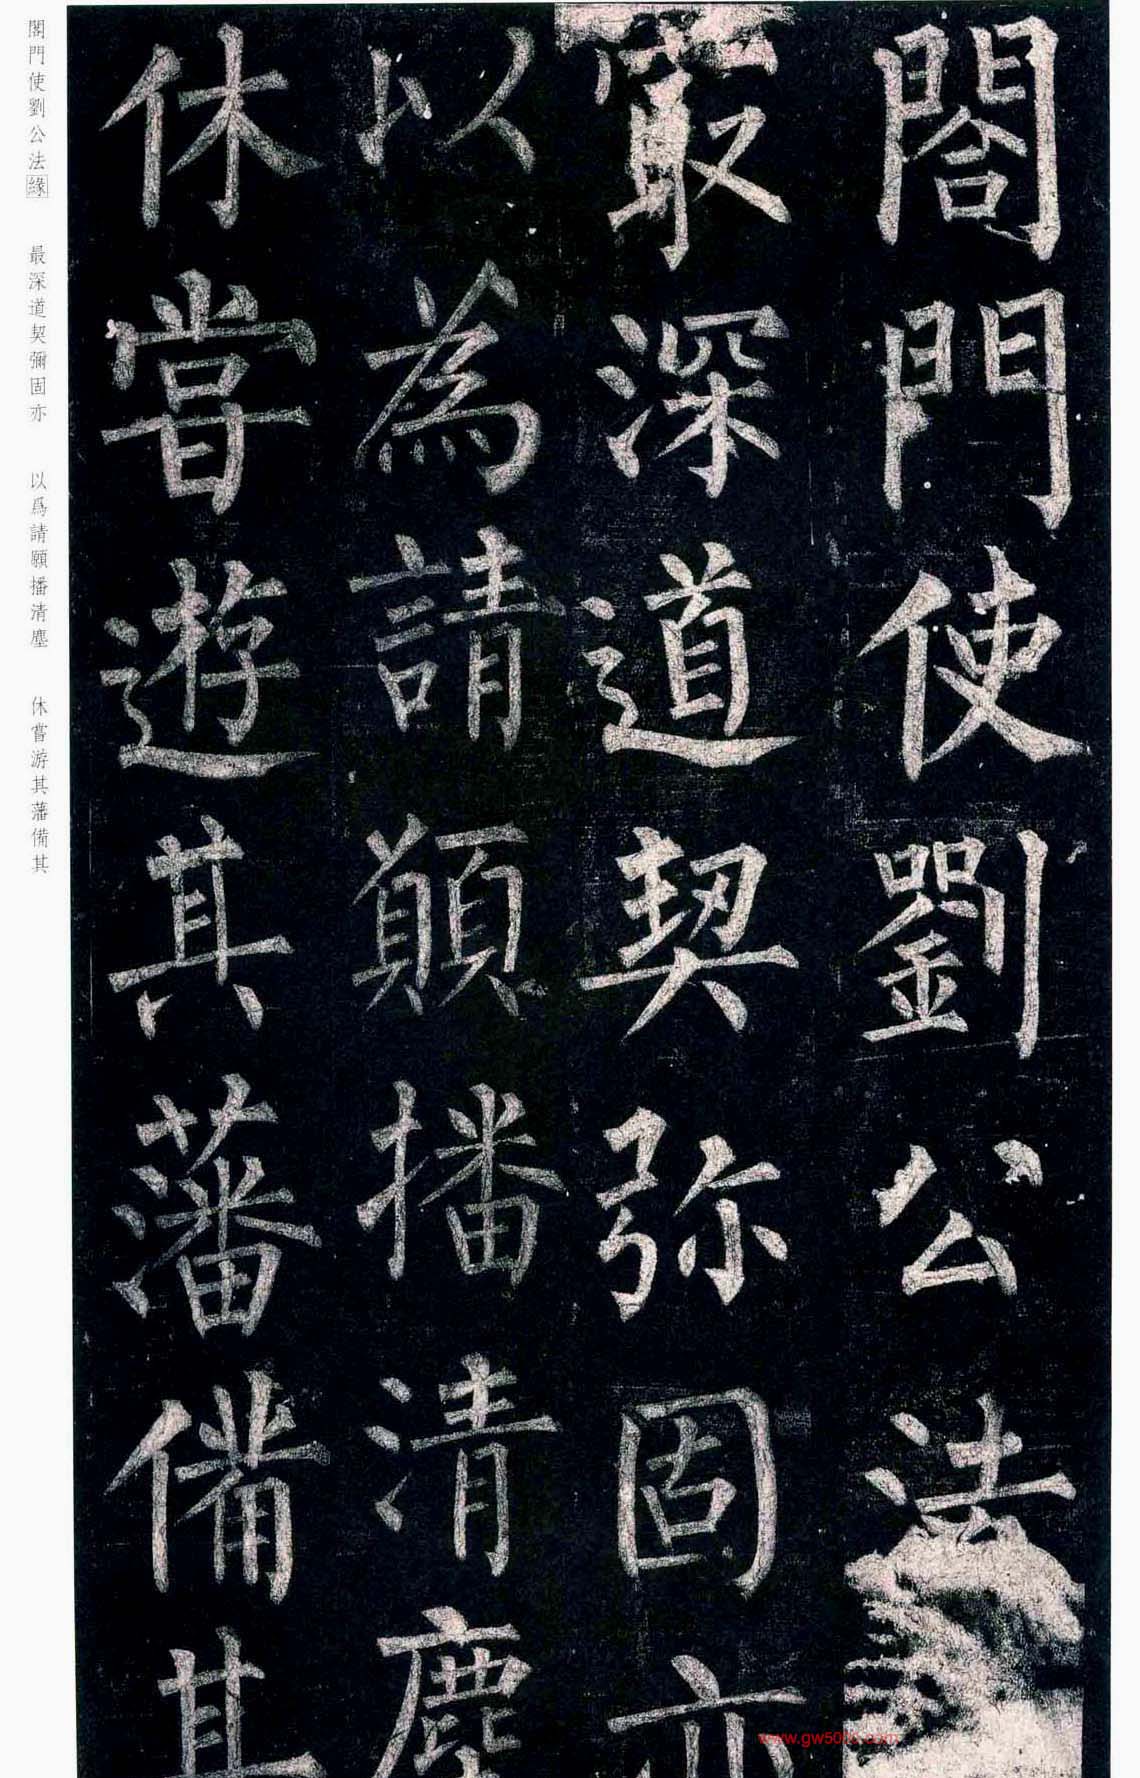 閤門使劉公法
冣深道契弥固亦
以為請願播清塵
休嘗遊其藩備其
閣門使劉公法緣 最深道契彌固亦 以爲請願播清塵 休嘗游其藩備其
www.gw5000.com